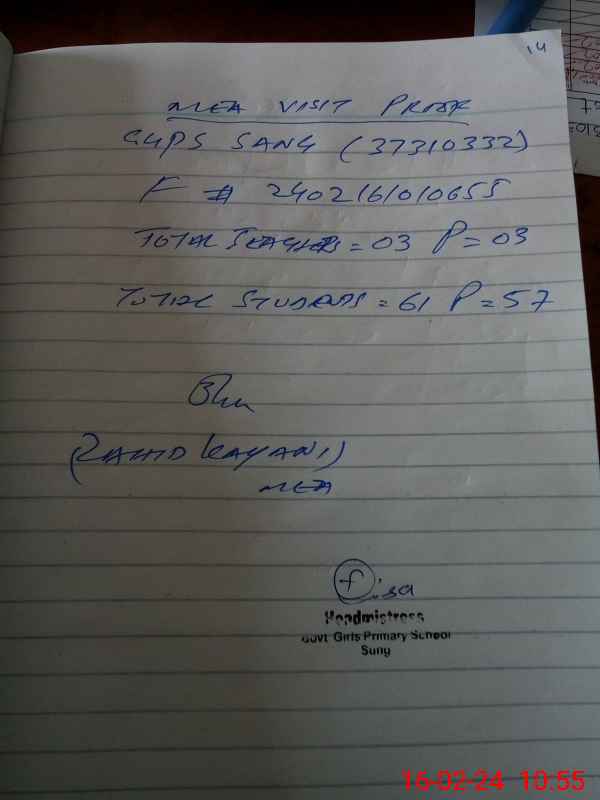 14
MEA VISIT PROOF
GGPS SANG (37310332)
F # 2402161010655
TOTAL TEACHERS = 03 P = 03
TOTAL STUDENTS = 61 P = 57
(ZAHID KAYANI)
MEA
Headmistress
Govt. Girls Primary School
Sung
16-02-24 10:55